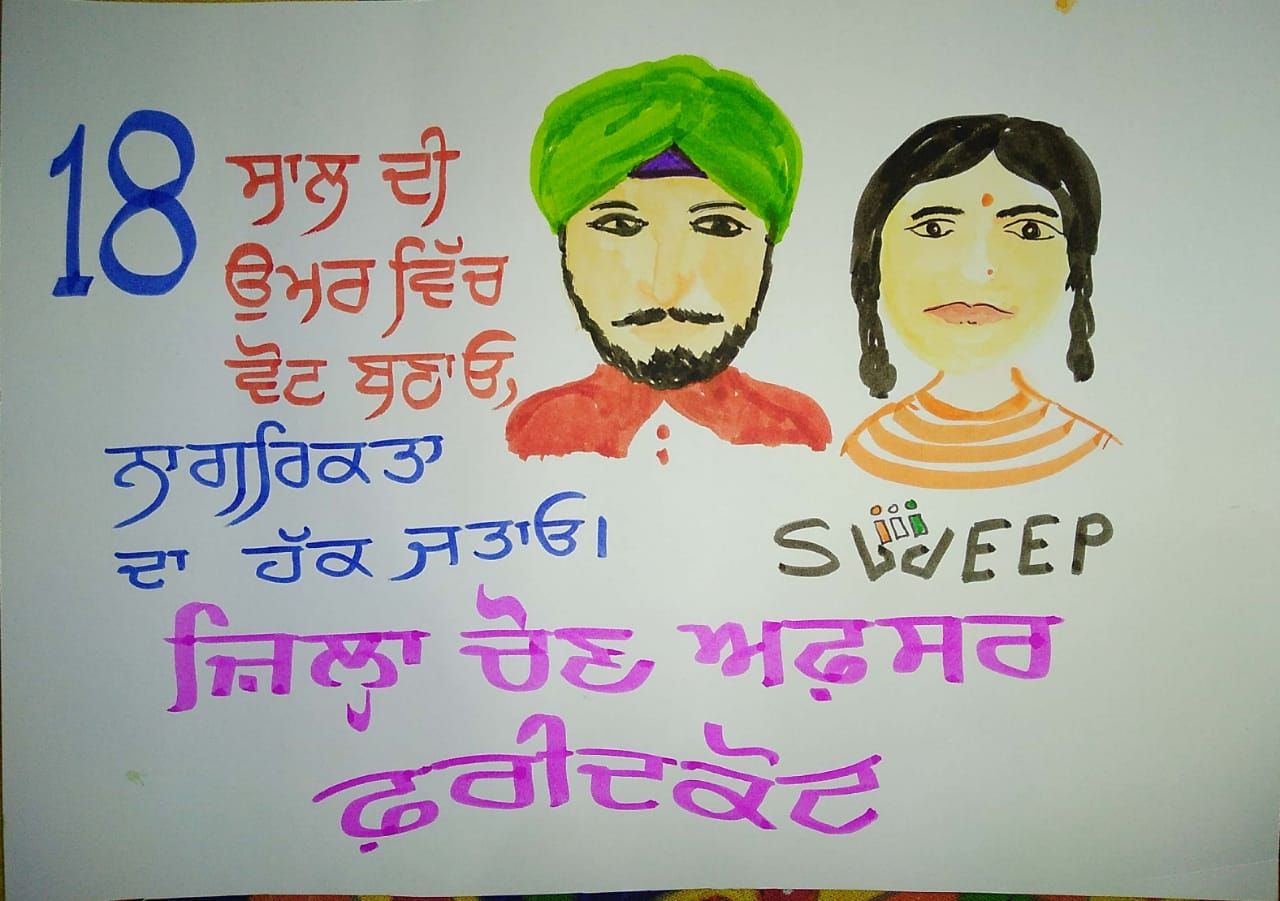 18 ਸਾਲ ਦੀ
ਉਮਰ ਵਿੱਚ
ਵੋਟ ਬਣਾਓ,
ਨਾਗਰਿਕਤਾ
ਦਾ ਹੱਕ ਜਤਾਓ।
SWEEP
ਜ਼ਿਲ੍ਹਾ ਚੋਣ ਅਫ਼ਸਰ
ਫ਼ਰੀਦਕੋਟ